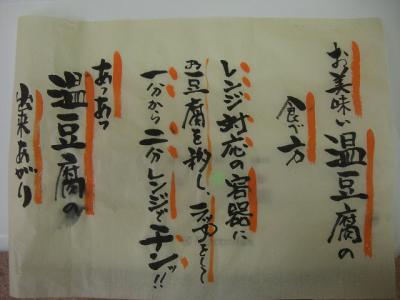 お美味い温豆腐の
食べ方
レンジ対応の容器に
豆腐を移し、ラップをして
一分から二分レンジでチンッ!!
あっあつ
温豆腐の
出来あがり